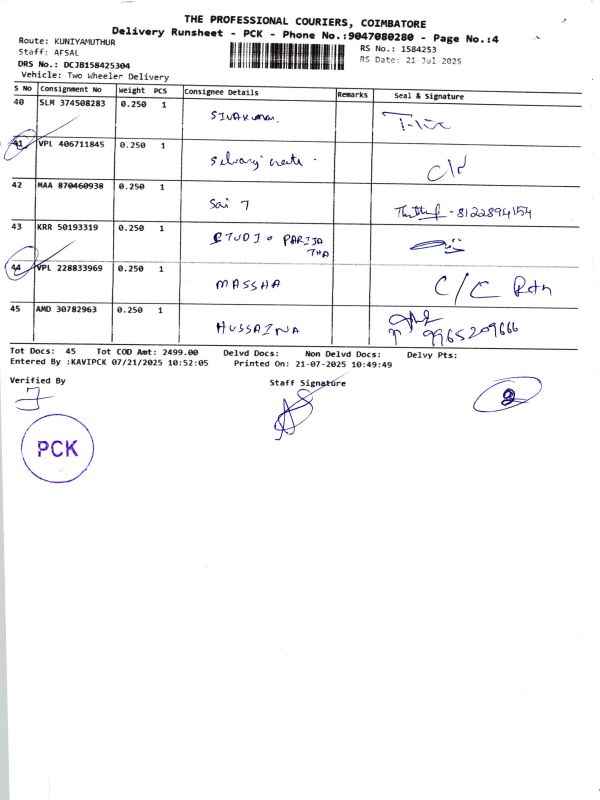 THE PROFESSIONAL COURIERS, COIMBATORE
Delivery Runsheet - PCK - Phone No.:9047080280 - Page No.:4
Route: KUNIYAMUTHUR
RS No.: 1584253
Staff: AFSAL
RS Date: 21-Jul-2025
DRS No.: DCJB158425304
Vehicle: Two Wheeler Delivery
S No Consignment No Weight PCS Consignee Details Remarks Seal & Signature
40 SLM 374508283 0.250 1
SIVAKUMAR.
41 VPL 406711845 0.250 1
42 MAA 870460938 0.250 1
Sai 7 8122894154
43 KRR 50193319 0.250 1
STUDIO PARIJA
THA
44 VPL 228833969 0.250 1
MASSHA C/C Rtn
45 AMD 30782963 0.250 1
HUSSAINA 9965209666
Tot Docs: 45 Tot COD Amt: 2499.00 Delvd Docs: Non Delvd Docs: Delvy Pts:
Entered By :KAVIPCK 07/21/2025 10:52:05 Printed On: 21-07-2025 10:49:49
Verified By Staff Signature
PCK